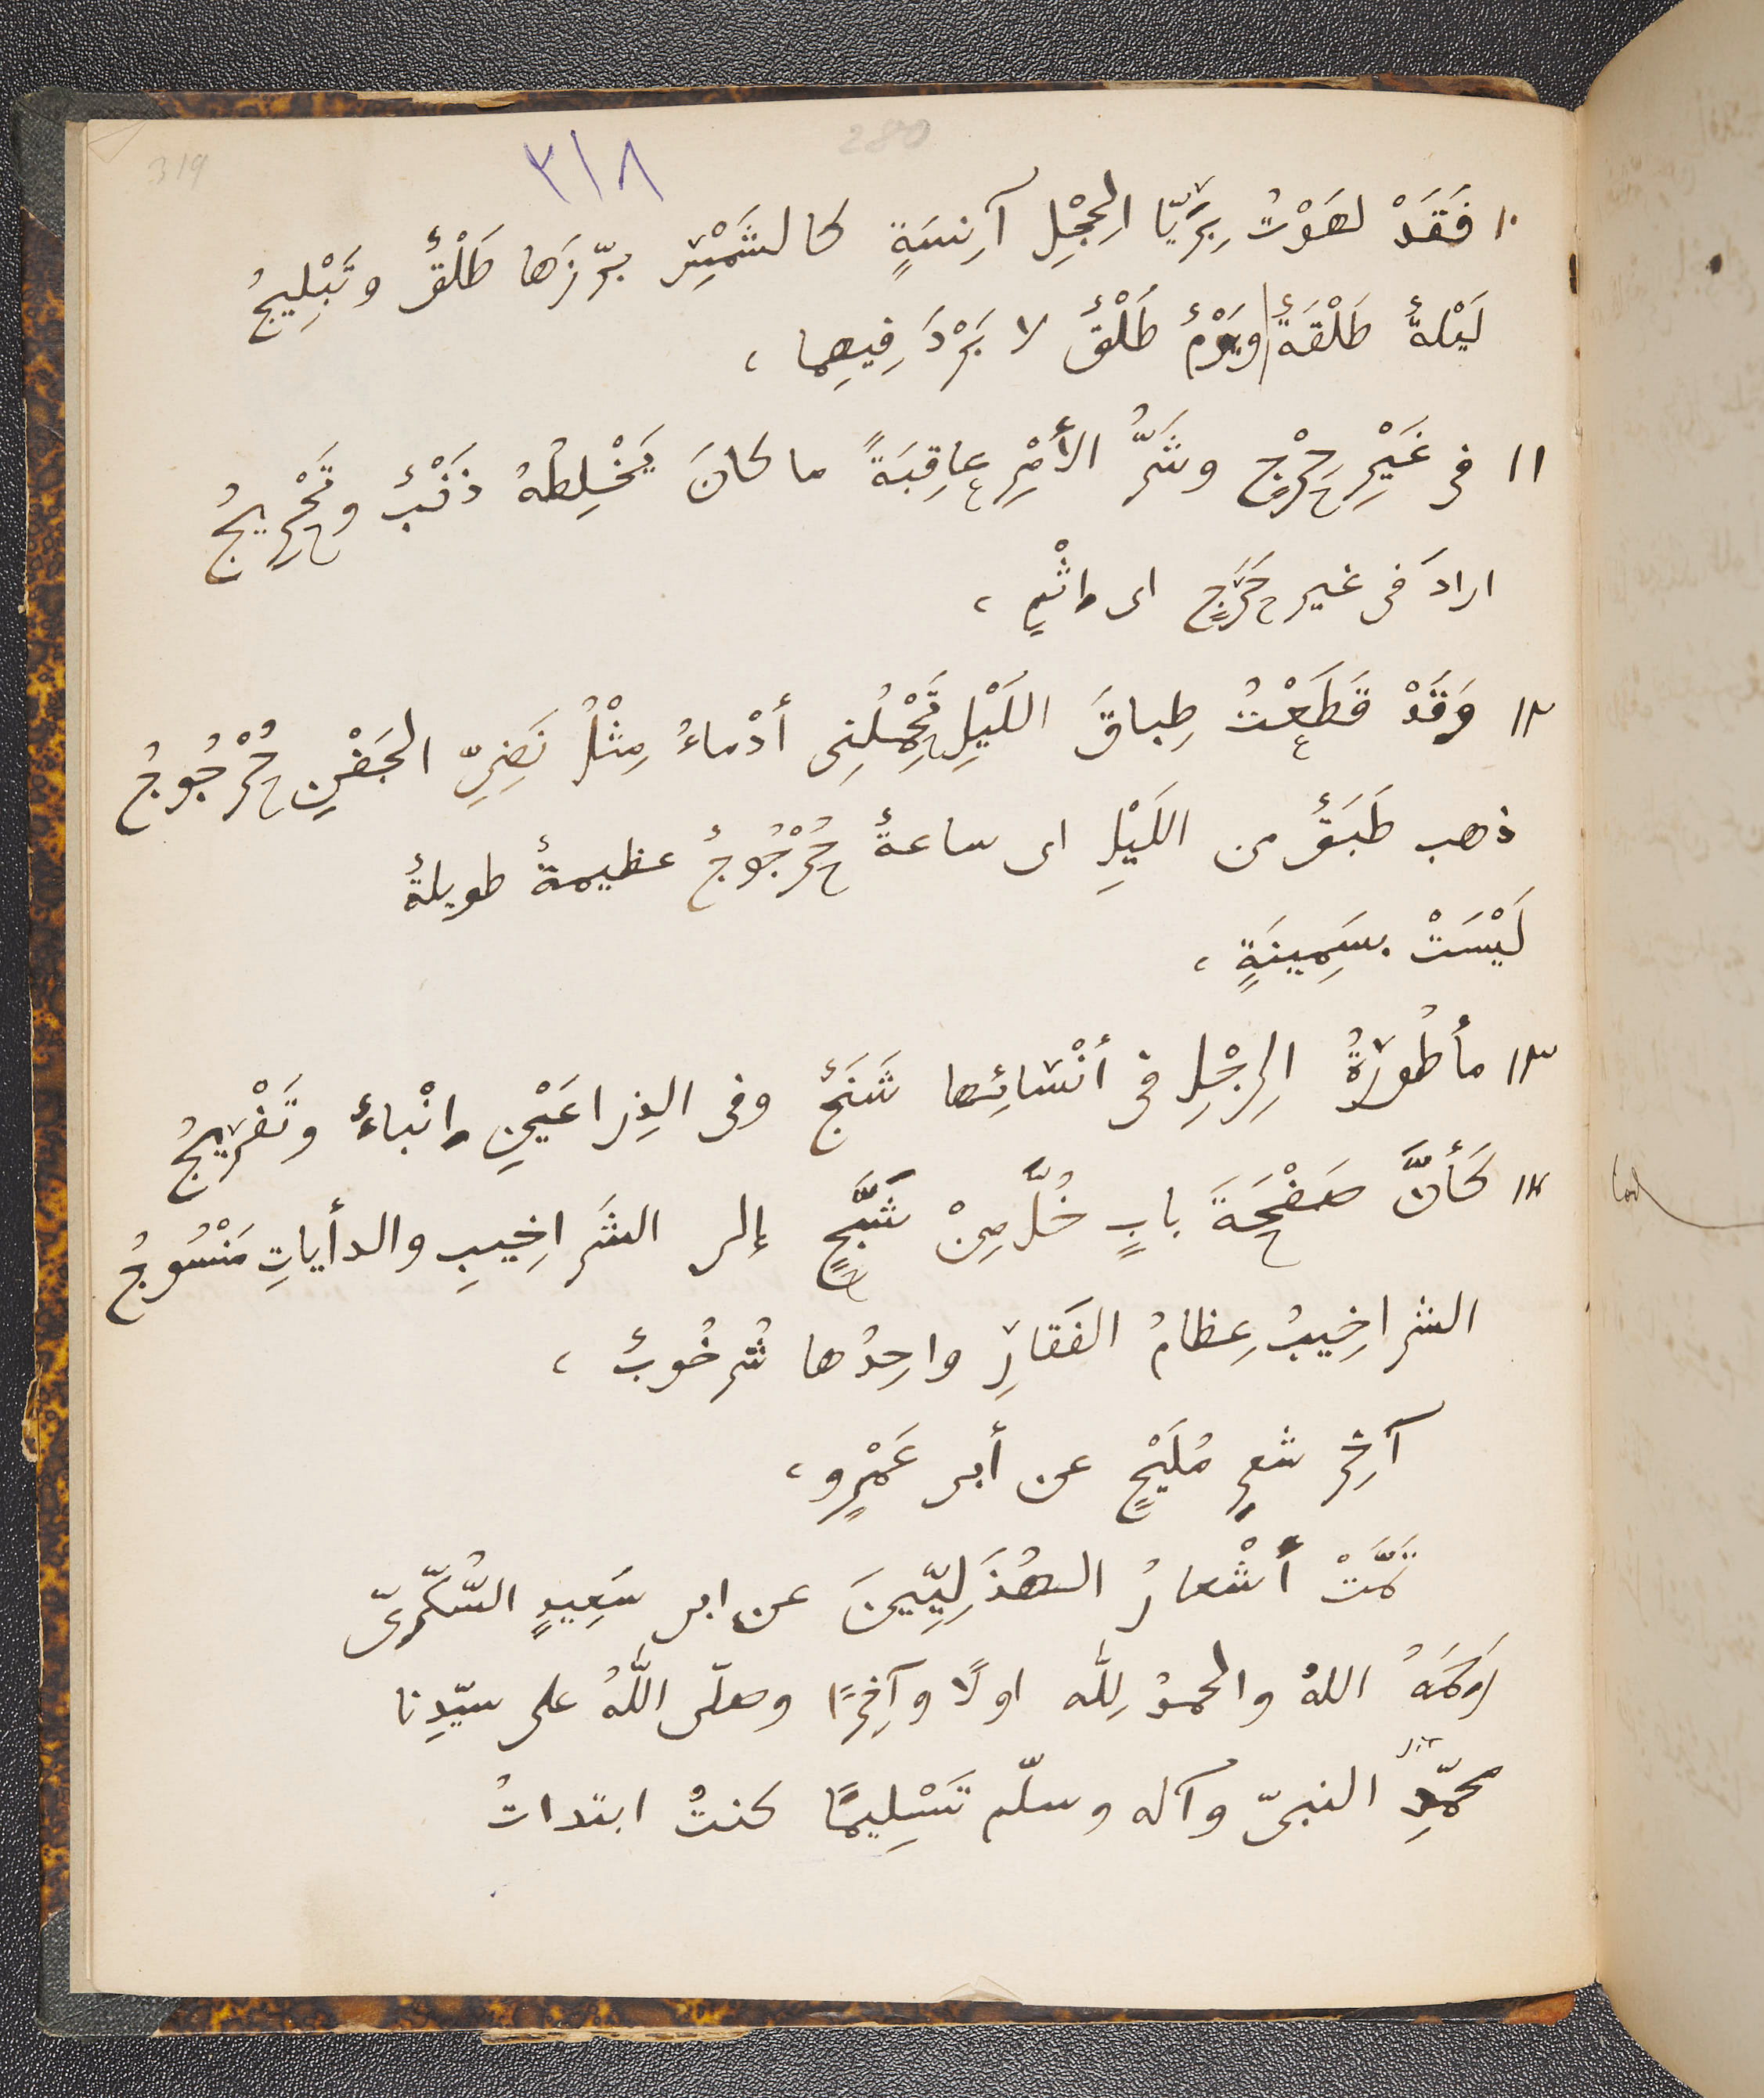 319
٣١٨
280
١٠ فَقَدْ لهَوْتُ بِرَيّا الحِجْلِ آنِسَةٍ كالشَمْسِ بَرّزَها طَلْقٌ وتَبْلِيجُ
لَيْلةٌ طَلْقَةٌ ويَوْمٌ طَلْقٌ لا بَرْدَ فِيهِما ،
١١ فى غَيْرِ حِرْجٍ وشَرُّ الأَمْرِ عاقِبَةً ما كانَ يَخْلِطُهُ ذَنْبٌ وتَحْرِيجُ
ارادَ فى غير حَرَجٍ اى اِثْمٍ ،
١٢ وَقَدْ قَطَعْتُ طِباقَ اللَيْلِ تَحْمِلُنِى أدْماءُ مِثْلُ نَضِىِّ الجَفْنِ حُرْجُوجُ
ذهب طَبَقٌ من اللَيْلِ اى ساعةٌ حُرْجُوجٌ عظيمةٌ طويلةٌ
لَيْسَتْ بسَمِينَةٍ ،
١٣ مأطُورَةُ الرِجْلِ فى أنْسائِها شَنَجٌ وفى الذِراعَيْنِ اِنْباءٌ وتَفْرِيجُ
١٤ كَأَنَّ صَفْحَةَ بابٍ خُلَّ مِنْ شَبَحٍ إلى الشَراخِيبِ والدأياتِ مَنْسُوجُ
الشراخِيبُ عِظامُ الفَقارِ واحِدُها شُرخُوبٌ ،
آخِر شعرِ مُلَيْحٍ عن أبى عَمْرٍو ،
تَمَّتْ أَشْعارُ الهُذَلِيّينَ عن ابى سَعِيدٍ السُّكَّرِىّ
رَحِمَهُ اللهُ والحمدُ لِلّٰه اولًا وآخِرًا وصلّى اللّٰهُ على سيّدِنا
محمّدٍ النبىّ وآله وسلّم تَسْلِيمًا كنتُ ابتداتُ